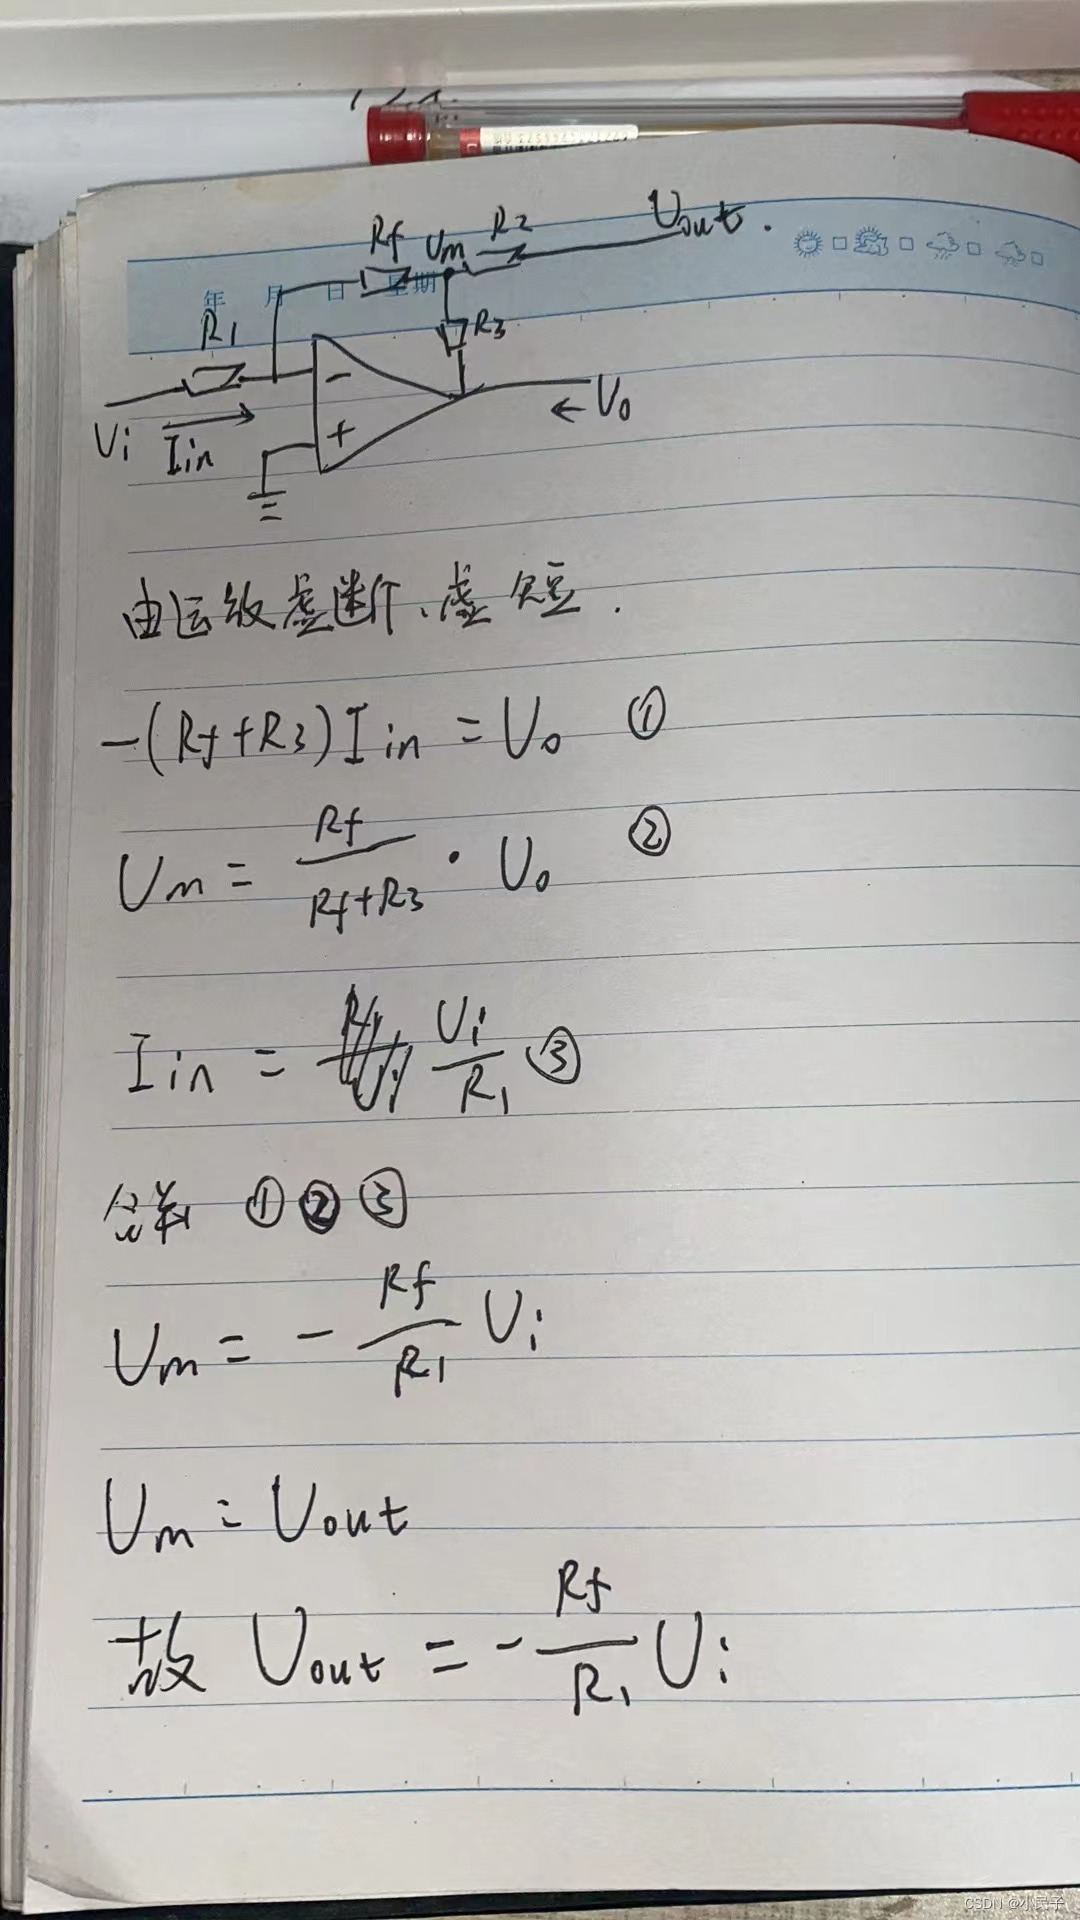 Rf Um R2 Uout .
年 月 日 星期
R1
R3
Ui Iin
-
+
← Uo
由运放虚断、虚短.
-(Rf+R3)Iin = Uo ①
Um = Rf/(Rf+R3) · Uo ②
Iin = Ui/R1 ③
①②③
Um = - Rf/R1 Ui
Um = Uout
故 Uout = - Rf/R1 Ui
CSDN @小民子